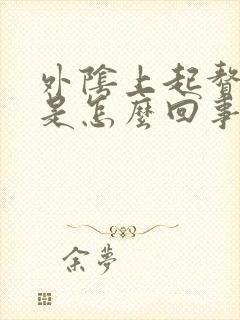 外陰上起贅
是怎麼回事
余夢